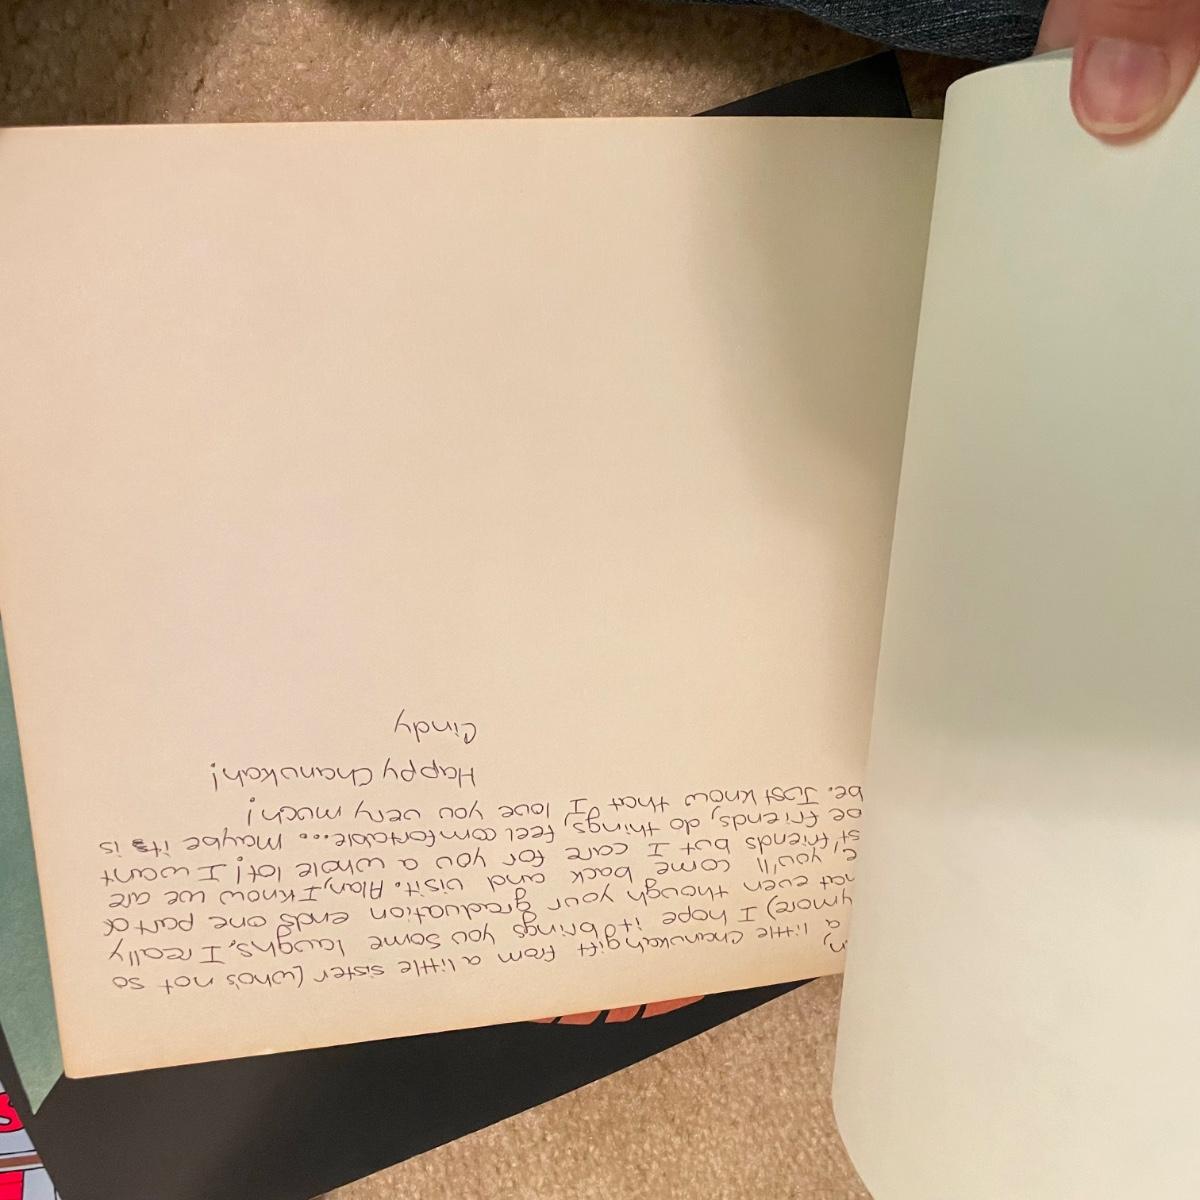 n,
a little Chanukah gift from a little sister (who's not so
ymore) I hope it brings you some laughs, I really
hat even though your graduation ends one part of
e, you'll come back and visit. Alan, I know we are
st friends but I care for you a whole lot! I want
be friends, do things, feel comfortable... maybe it is
be. Just know that I love you very much!
Happy Chanukah!
Cindy